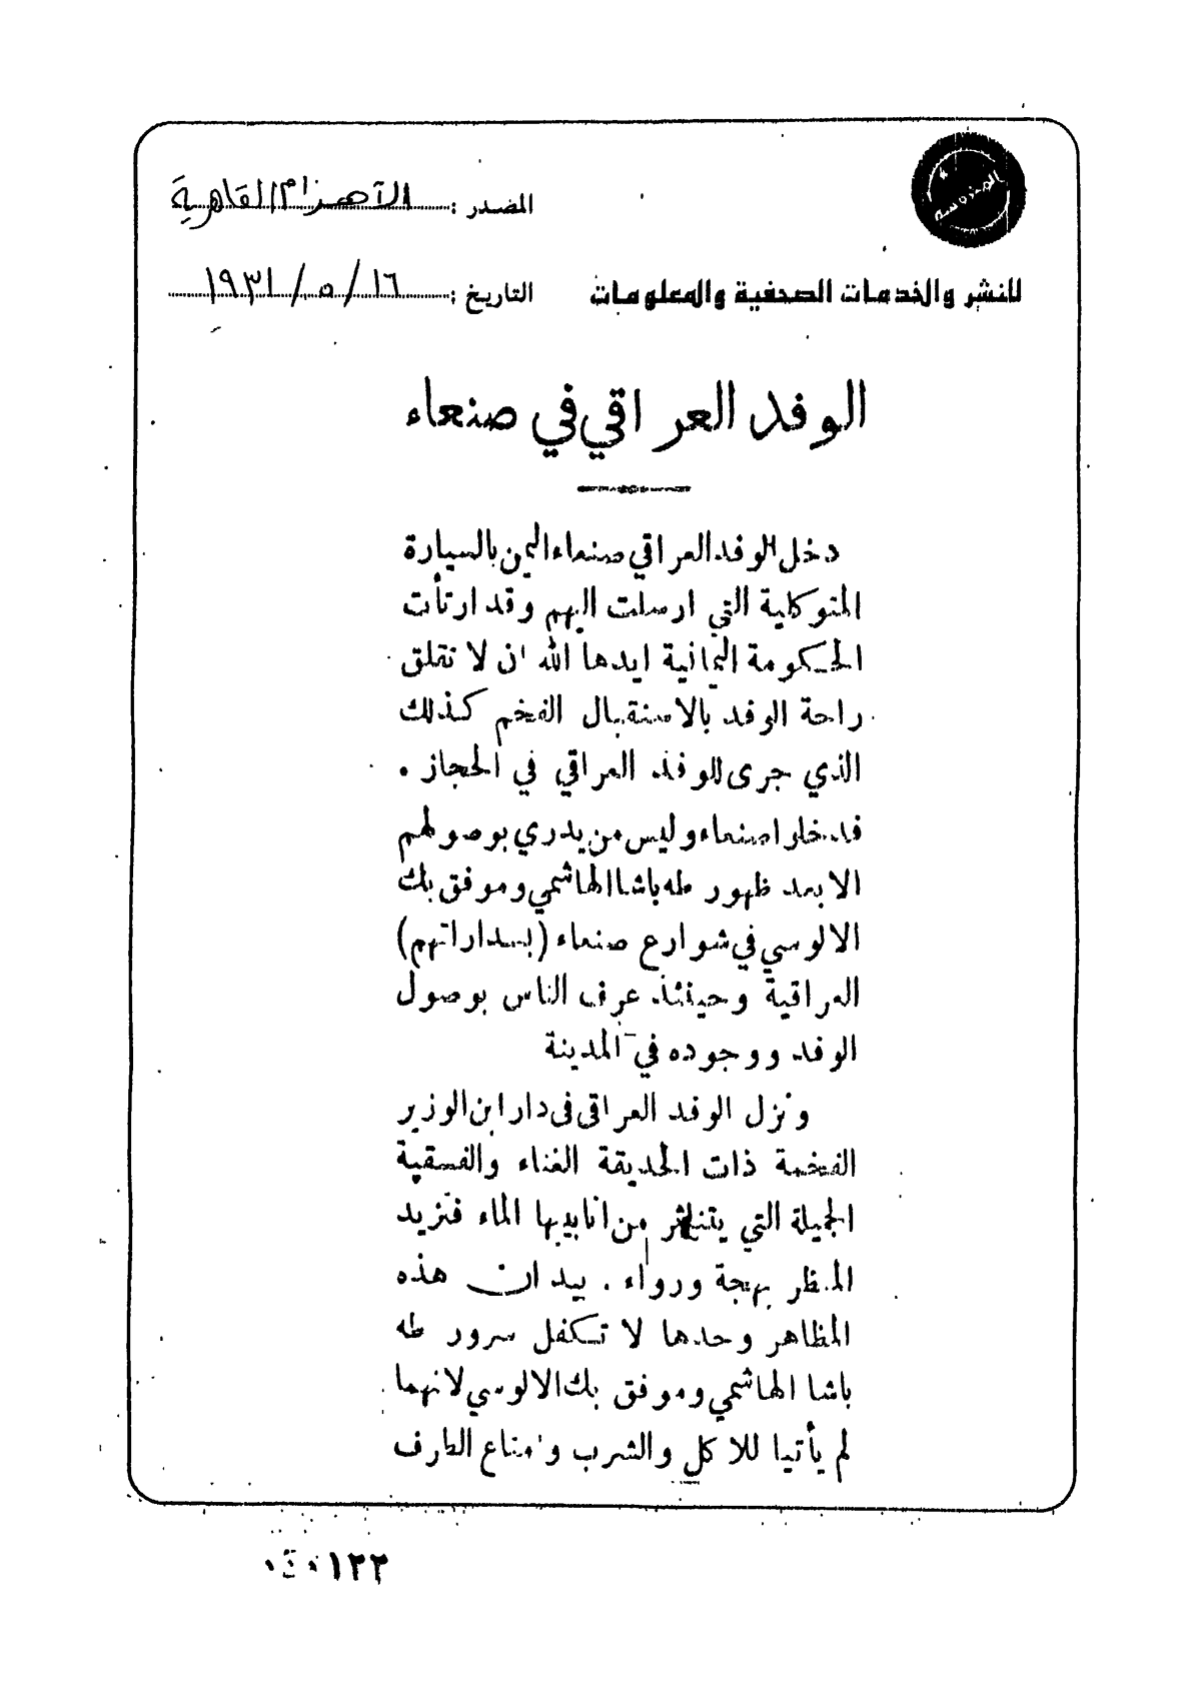 المصدر: الآهرام القاهرية
للنشر والخدمات الصحفية والمعلومات
التاريخ: ١٦/ ٥/ ١٩٣١
الوفد العراقي في صنعاء
دخل الوفد العراقي صنعاء اليمن بالسيارة
المتوكلية التي ارسلت اليهم وقد ارتأت
الحكومة اليمانية ايدها الله ان لا تقلق
راحة الوفد بالاستقبال الفخم كذلك
الذي جرى للوفد العراقي في الحجاز .
فدخلوا صنعاء وليس من يدري بوصولهم
الا بعد ظهور طه باشا الهاشمي وموفق بك
الالوسي في شوارع صنعاء (بسداراتهم)
العراقية وحينئذ عرف الناس بوصول
الوفد ووجوده في المدينة
ونزل الوفد العراقي في دار ابن الوزير
الفخمة ذات الحديقة الغناء والفسقية
الجميلة التي يتناثر من انابيبها الماء فتزيد
المنظر بهجة ورواء . بيد ان هذه
المظاهر وحدها لا تكفل سرور طه
باشا الهاشمي وموفق بك الالوسي لانهما
لم يأتيا للاكل والشرب وامتاع الطرف